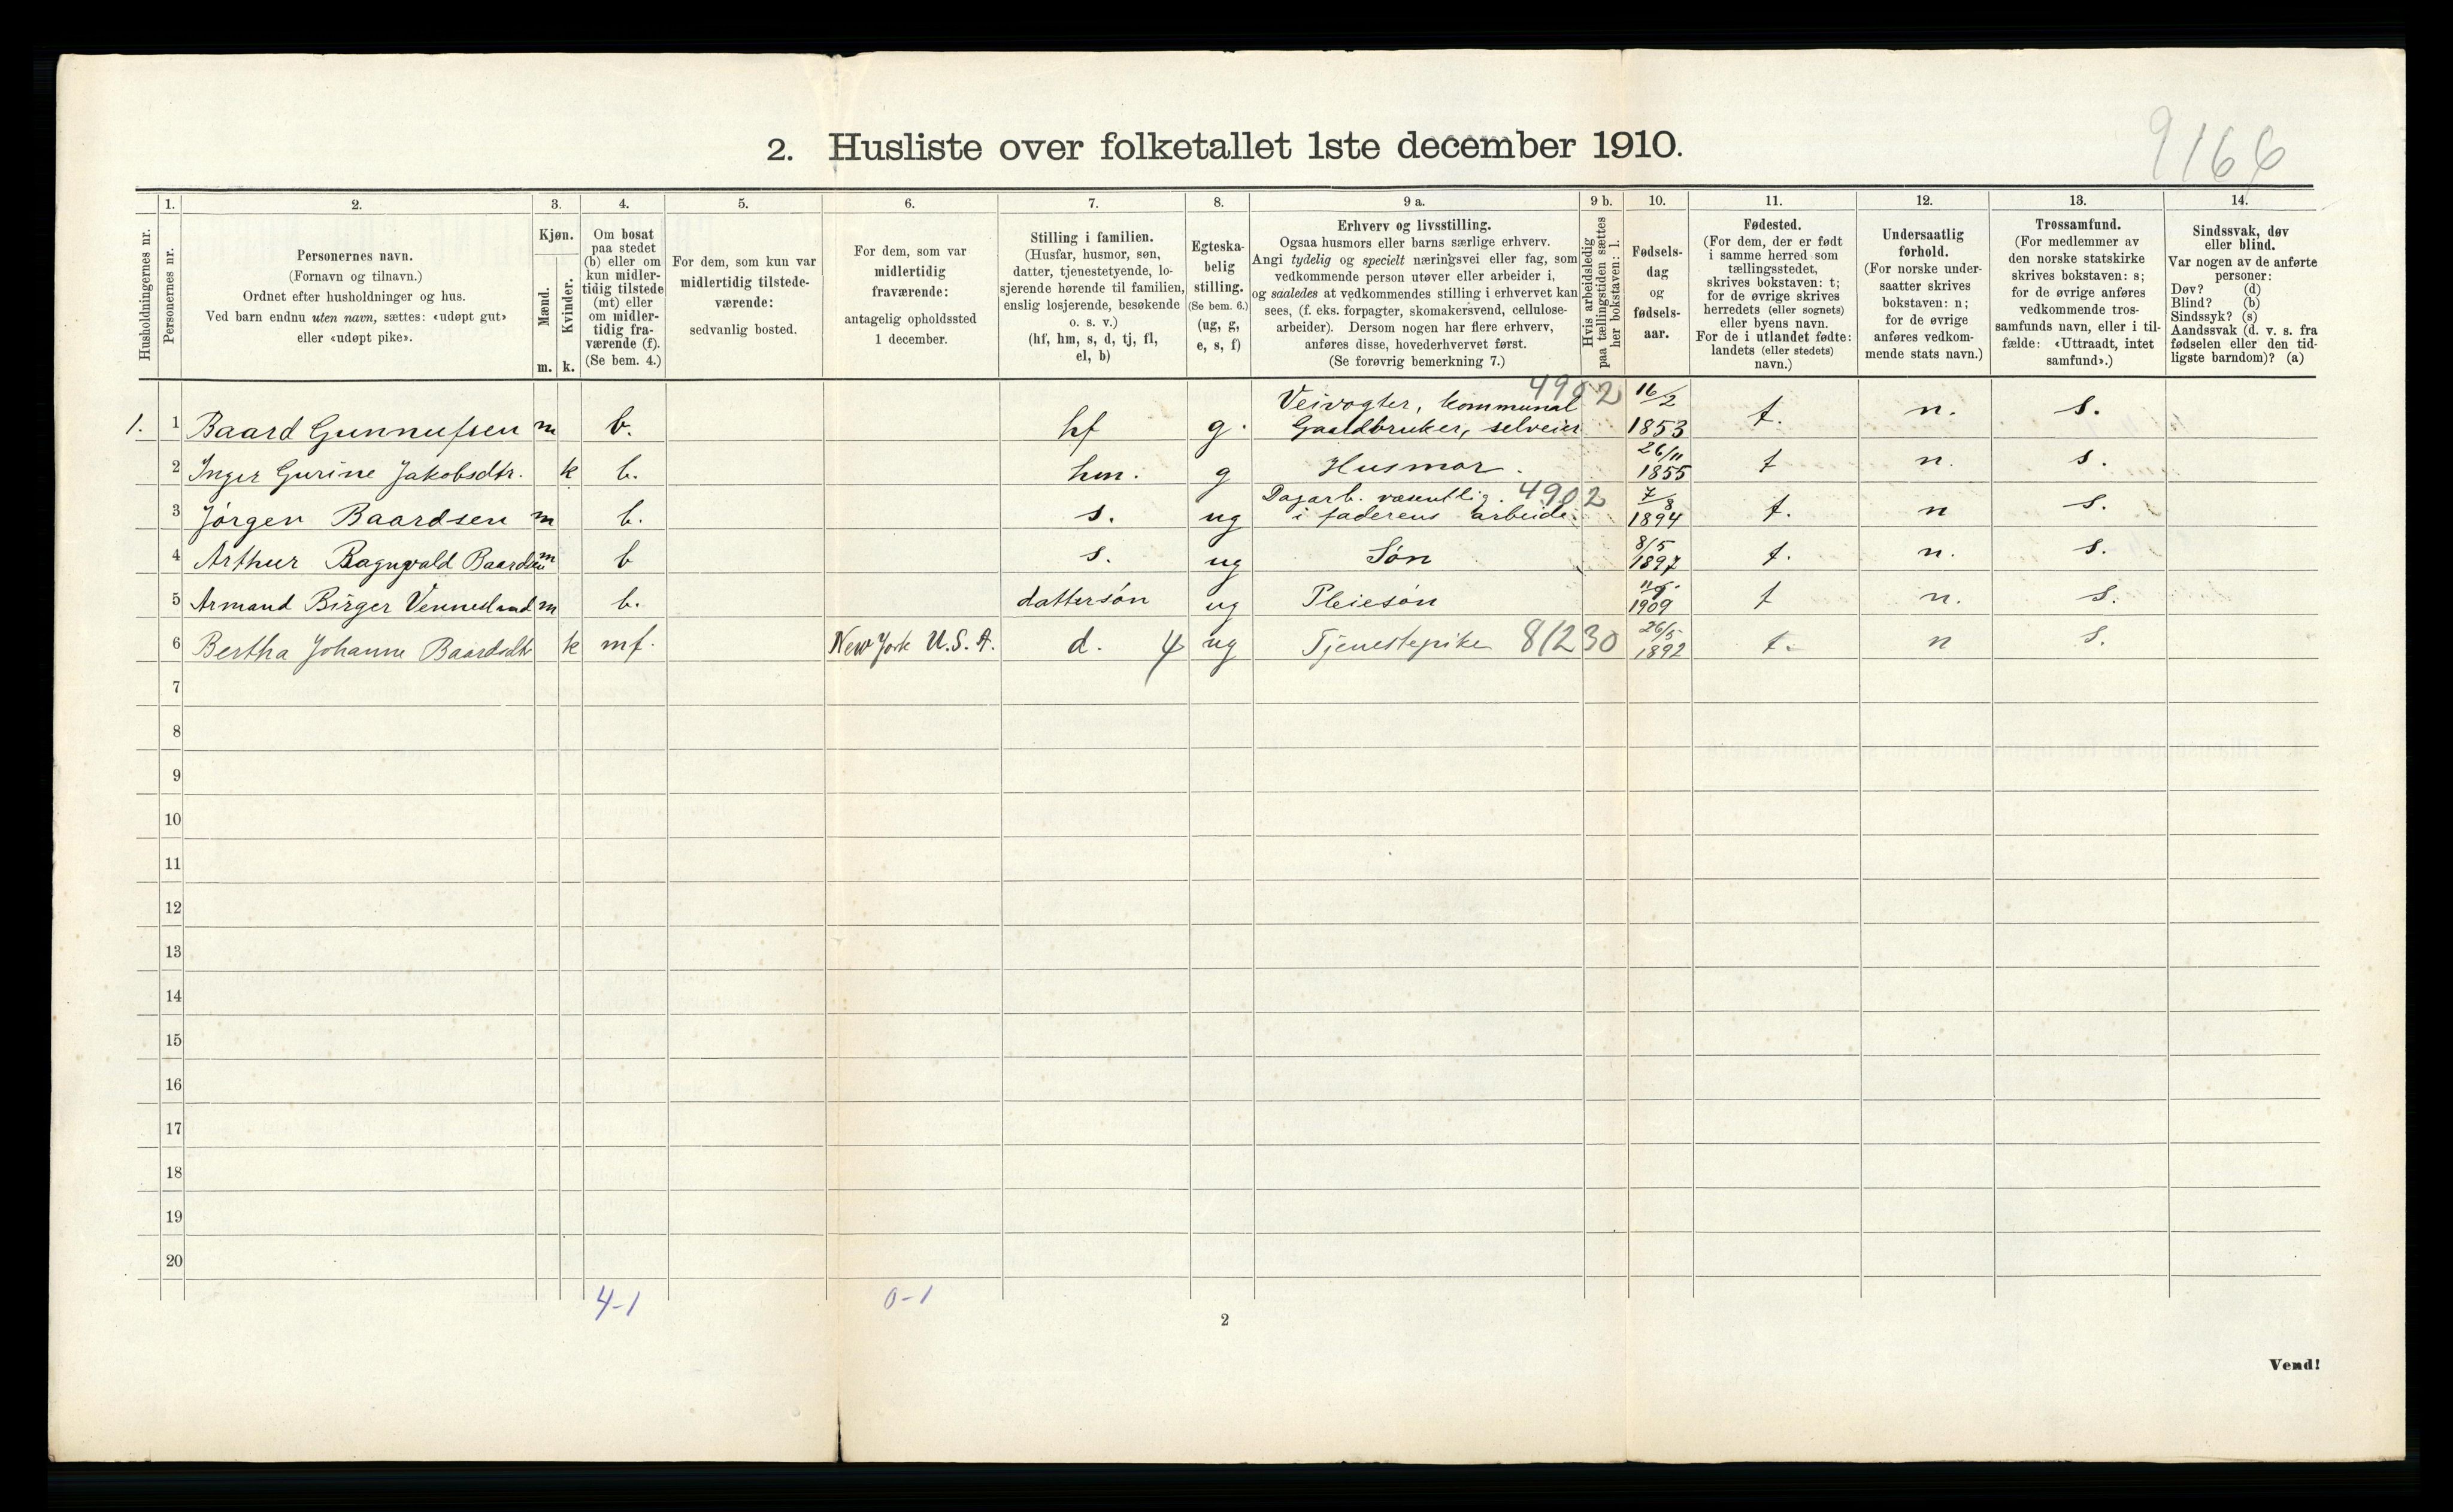 9166
2. Husliste over folketallet 1ste december 1910.
Husholdningernes nr.
1.
Personernes nr.
2.
Personernes navn.
(Fornavn og tilnavn.)
Ordnet efter husholdninger og hus.
Ved barn endnu uten navn, sættes: «udøpt gut»
eller «udøpt pike».
3.
Kjøn.
Mænd.
Kvinder.
m. k.
4.
Om bosat
paa stedet
(b) eller om
kun midler-
tidig tilstede
(mt) eller
om midler-
tidig fra-
værende (f).
(Se bem. 4.)
5.
For dem, som kun var
midlertidig tilstede-
værende:
sedvanlig bosted.
6.
For dem, som var
midlertidig
fraværende:
antagelig opholdssted
1 december.
7.
Stilling i familien.
(Husfar, husmor, søn,
datter, tjenestetyende, lo-
sjerende hørende til familien,
enslig losjerende, besøkende
o. s. v.)
(hf, hm, s, d, tj, fl,
el, b)
8.
Egteska-
belig
stilling.
(Se bem. 6.)
(ug, g,
e, s, f)
9 a.
Erhverv og livsstilling.
Ogsaa husmors eller barns særlige erhverv.
Angi tydelig og specielt næringsvei eller fag, som
vedkommende person utøver eller arbeider i,
og saaledes at vedkommendes stilling i erhvervet kan
sees, (f. eks. forpagter, skomakersvend, cellulose-
arbeider). Dersom nogen har flere erhverv,
anføres disse, hovederhvervet først.
(Se forøvrig bemerkning 7.)
9 b.
Hvis arbeidsledig
paa tællingstiden sættes
her bokstaven: l.
10.
Fødsels-
dag
og
fødsels-
aar.
11.
Fødested.
(For dem, der er født
i samme herred som
tællingsstedet,
skrives bokstaven: t;
for de øvrige skrives
herredets (eller sognets)
eller byens navn.
For de i utlandet fødte:
landets (eller stedets)
navn.)
12.
Undersaatlig
forhold.
(For norske under-
saatter skrives
bokstaven: n;
for de øvrige
anføres vedkom-
mende stats navn.)
13.
Trossamfund.
(For medlemmer av
den norske statskirke
skrives bokstaven: s;
for de øvrige anføres
vedkommende tros-
samfunds navn, eller i til-
fælde: «Uttraadt, intet
samfund».)
14.
Sindssvak, døv
eller blind.
Var nogen av de anførte
personer:
Døv? (d)
Blind? (b)
Sindssyk? (s)
Aandssvak (d. v. s. fra
fødselen eller den tid-
ligste barndom)? (a)
Veivogter, kommunal 4902 16/2
1. 1 Baard Gunnufsen m b. hf g. Gaardbruker, selveier 1853 t. n. s.
26/11
2 Inger Gurine Jakobsdtr. k b. hm. g Husmor. 1855 t n. s.
Dagarb. væsentlig. 4902 7/8
3 Jørgen Baardsen m b. s. ug i faderens arbeide. 1894 t. n s.
8/5
4 Arthur Ragnvald Baardsen m b s. ug Søn 1897 t. n. s.
5 Armand Birger Vennesland m b. dattersøn ug Pleiesøn 1909 t n. s.
26/5
6 Bertha Johanne Baardsdtr k mf. New York U.S.A. d. 4 ug Tjenestepike 81230 1892 t. n s.
7
8
9
10
11
12
13
14
15
16
17
18
19
20
4-1 0-1
2
Vend!